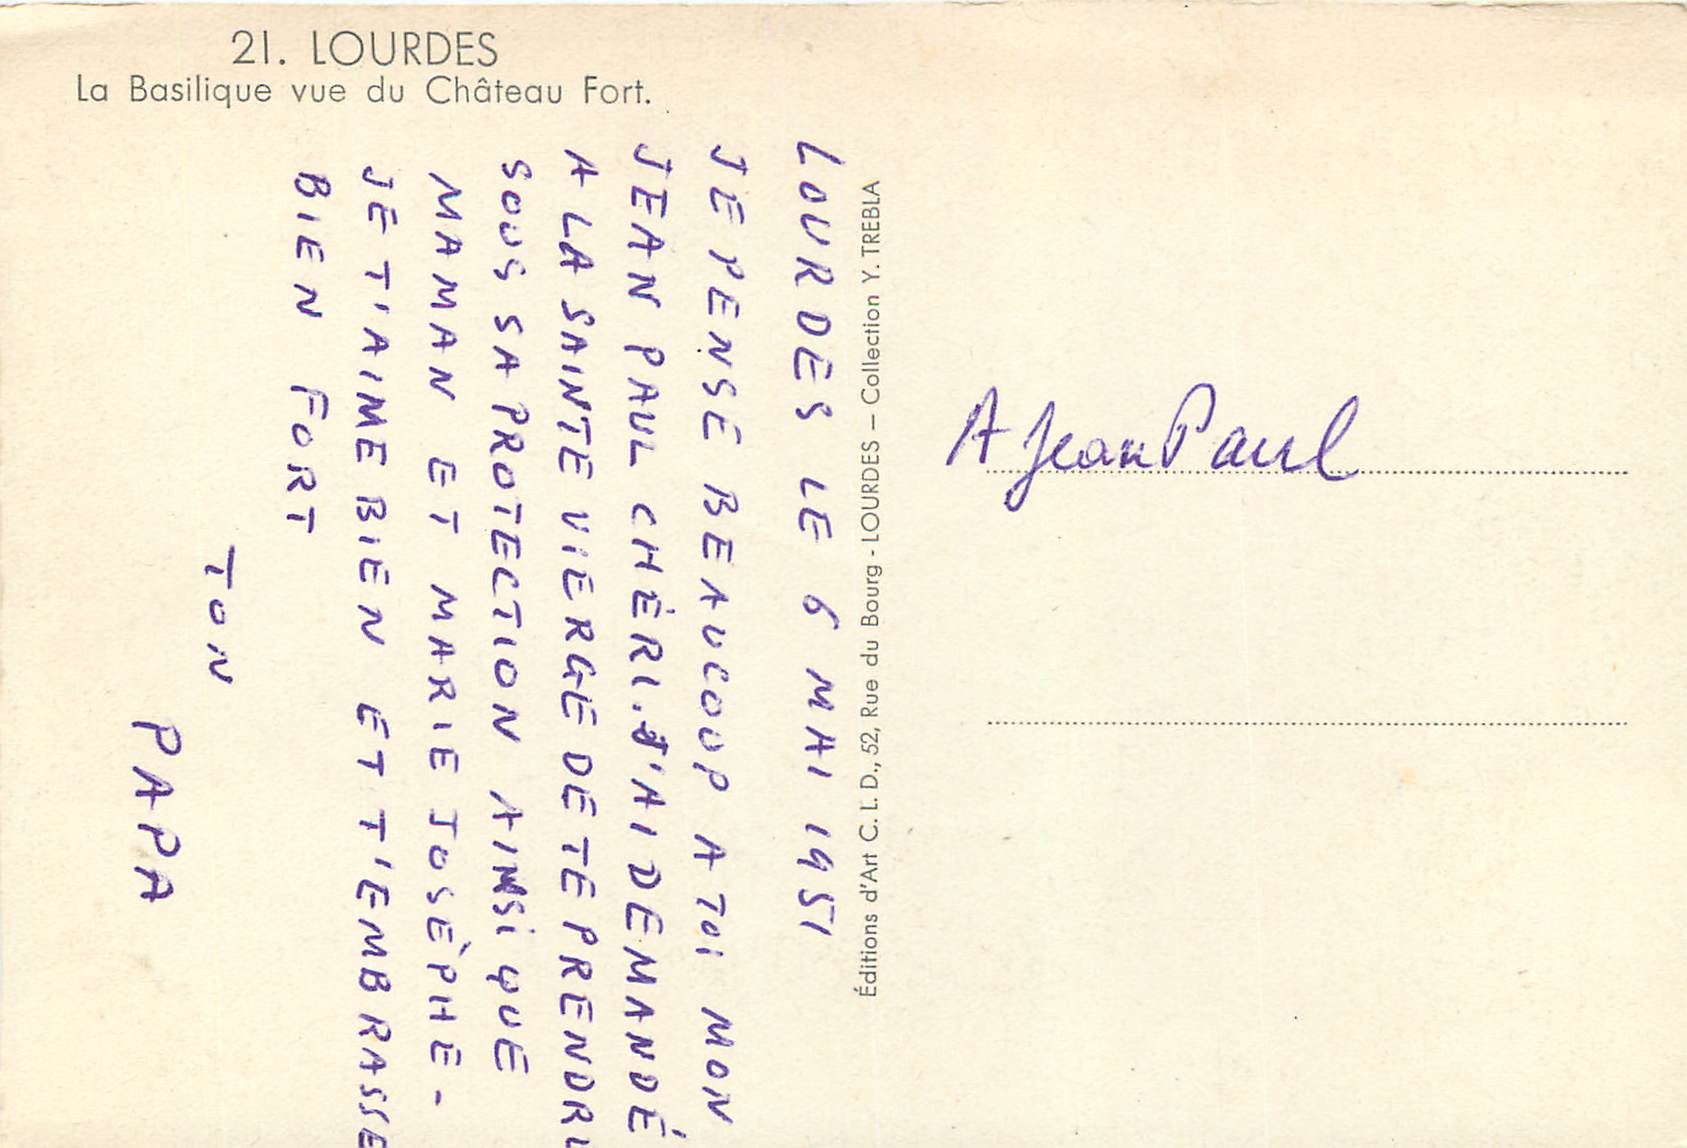 21. LOURDES
La Basilique vue du Château Fort.
LOURDES LE 6 MAI 1951
JE PENSE BEAUCOUP A TOI MON
JEAN PAUL CHÉRI. J'AI DEMANDÉ
A LA SAINTE VIERGE DE TE PRENDRE
SOUS SA PROTECTION AINSI QUE
MAMAN ET MARIE JOSÈPHE -
JE T'AIME BIEN ET T'EMBRASSE
BIEN FORT
TON
PAPA
Éditions d'Art C. I. D., 52, Rue du Bourg - LOURDES — Collection Y. TREBLA
A Jean Paul